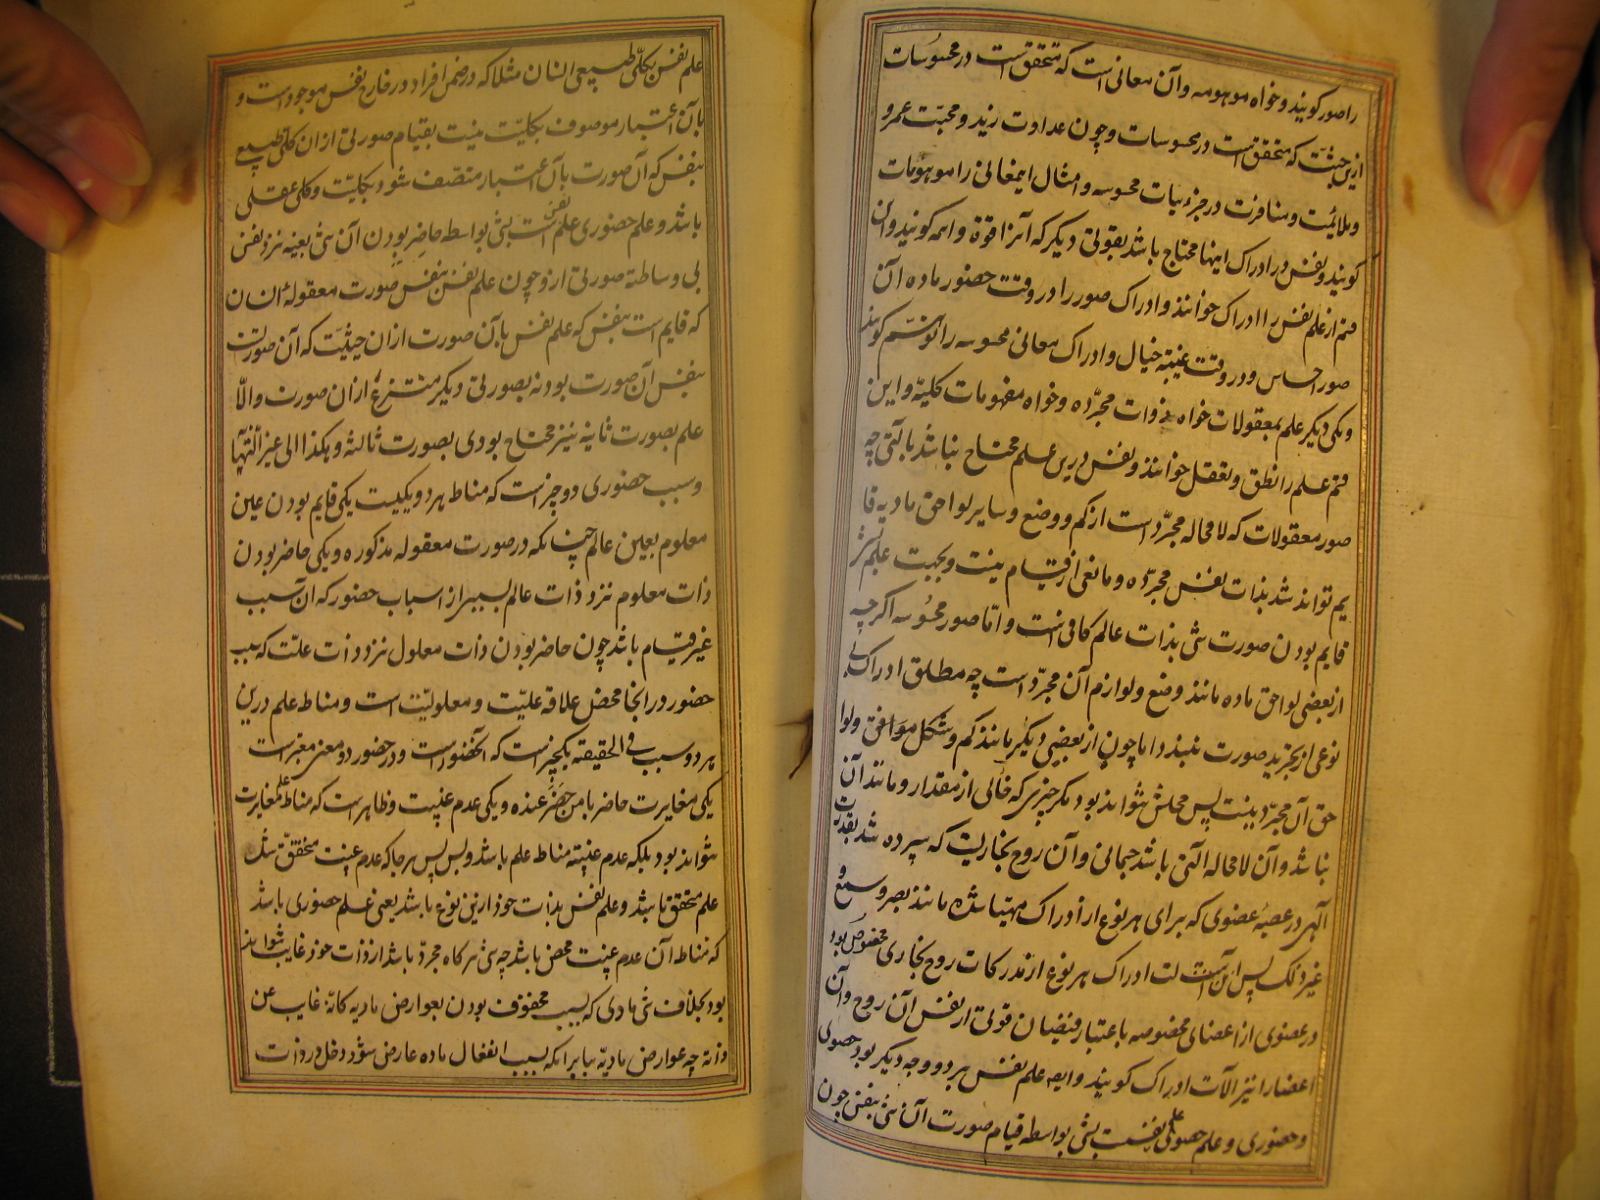 را صور کویند و خواه موهومه و آن معانی است که متحقق است در محسوسات
ازین حیثیت که متحقق است در محسوسات و چون عداوت زید و محبت عمرو
و ملائمت و منافرت در جزئیات محسوسه و امثال اینمعانی را موهومات
کویند و نفس در ادراک اینها محتاج باشد بقوتی دیکر که آنرا قوة واهمه کویند و این
قسم از علم نفس را ادراک خوانند و ادراک صور را در وقت حضور ماده آن
صور احساس و در وقت غیبة خیال و ادراک معانی محسوسه را توهم کویند
و یکی دیکر علم بمعقولات خواه ذوات مجرّده و خواه مفهومات کلیة و این
قسم علم را نطق و تعقل خوانند و نفس درین علم محتاج نباشد بآلتی چه
صور معقولات که لا محاله مجرّد است از کم و وضع و سایر لواحق مادیه قا
یم تواند شد بذات نفس مجرّده و مانعی از قیام نیست و بجهت علم
قایم بودن صورت شی بذات عالم کافی است و امّا صور محسوسه اکرچه
از بعضی لواحق ماده مانند وضع و لوازم آن مجرّد است چه مطلق ادراک بی
نوعی از تجرید صورت نبندد اما چون از بعضی دیکر مانند کم و شکل موافق و لوا
حق آن مجرّد نیست پس محلش نتواند بود مکر چیزی که خالی از مقدار و مانند آن
نباشد و آن لا محاله آلتی باشد جسمانی و آن روح بخاریست که سپرده شد بقدرت
آلهی در عصبه عضوی که برای هر نوع از ادراک مهیا شده مانند بصر و سمع و
غیر ذلک پس آلت ادراک هر نوع از مدرکات روح بخاری مخصوص بود
در عضوی از اعضای مخصوصه باعتبار فیضان قوتی از نفس بر آن روح و آن
اعضا را نیز آلات ادراک کویند و ایضا علم نفس بر دو وجه دیکر بود حصولی
و حضوری و علم حصولی علم نفس است بشی بواسطه قیام صورت آن شی بنفس چون
علم نفس بکلّی طبیعی انسان مثلا که در ضمن افراد در خارج نفس موجود است و
بآن اعتبار موصوف بکلیّت نیست بقیام صورتی از ان کلی طبیعی
بنفس که آن صورت بآن اعتبار متصّف شود بکلیّت و کلی عقلی
باشد و علم حضوری علم نفس است بشی بواسطه حاضر بودن آن شی بعینه نزد نفس
بی وساطة صورتی ازو چون علم نفس بنفس صورت معقولهٔ انسان
که قایم است بنفس که علم نفس بآن صورت از ان حیثیّت که آن صورتست
بنفس آن صورت بود نه بصورتی دیکر منتزع از ان صورت و الّا
علم بصورت ثانیه نیز محتاج بودی بصورت ثالثه و هکذا الی غیر النّهایة
و سبب حضوری دو چیز است که مناط هر دو یکیست یکی قایم بودن عین
معلوم بعین عالم چنانکه در صورت معقوله مذکوره و یکی حاضر بودن
ذات معلوم نزد ذات عالم بسببی از اسباب حضور که آن سبب
غیر قیام باشد چون حاضر بودن ذات معلول نزد ذات علّت که سبب
حضور در انجا محض علاقه علیّت و معلولیّت است و مناط علم درین
هر دو سبب فی الحقیقه یکچیز است که آن حضور است و در حضور دو معنی معتبر است
یکی مغایرت حاضر با من حضر عنده و یکی عدم غیبت و ظاهر است که مناط علم مغایرت
نتواند بود بلکه عدم غیبة مناط علم باشد و بس پس هر جا که عدم غیبت متحقق شد
علم متحقق باشد و علم نفس بذات خود ازین نوع باشد یعنی علم حضوری باشد
که مناط آن عدم غیبت محض باشد چه شی هر کاه مجرّد باشد از ذات خود غایب نتواند
بود بخلاف شی مادی که بسبب محفوف بودن بعوارض مادیه کانّه غایب عن
ذاته چه عوارض مادیّه بنا بر انکه بسبب انفعال ماده عارض شود دخل در ذات